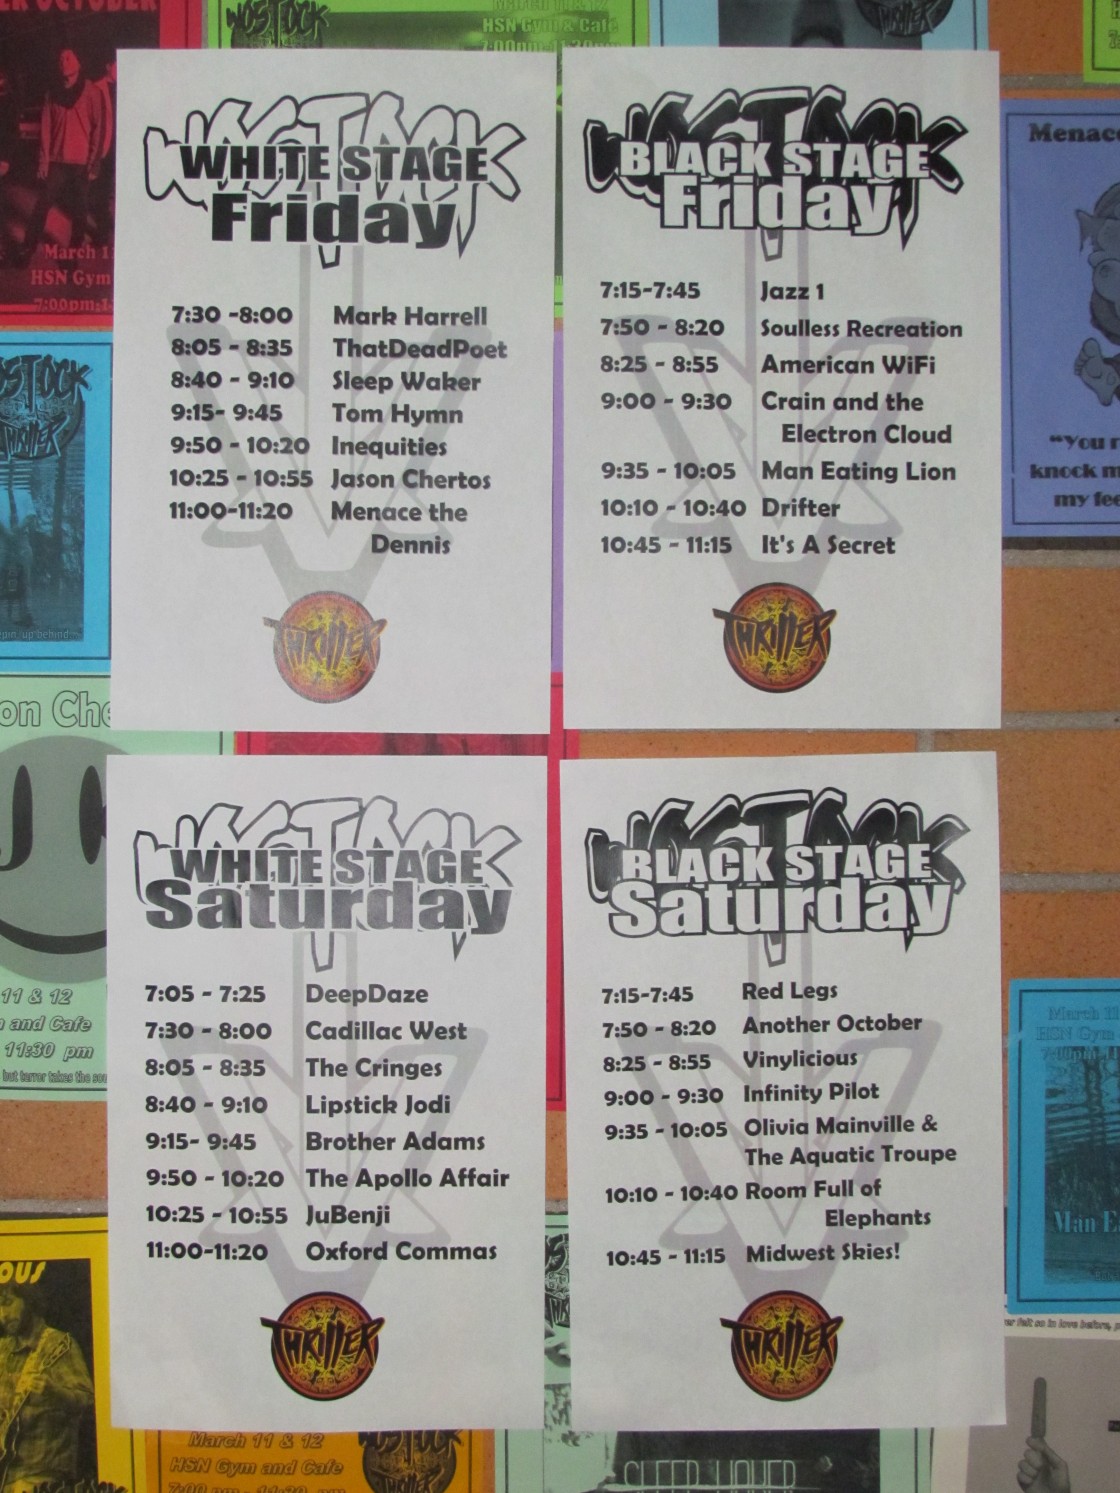 WOSTOCK
WHITE STAGE
Friday
7:30 -8:00 Mark Harrell
8:05 - 8:35 ThatDeadPoet
8:40 - 9:10 Sleep Waker
9:15- 9:45 Tom Hymn
9:50 - 10:20 Inequities
10:25 - 10:55 Jason Chertos
11:00-11:20 Menace the
Dennis
THRILLER
WOSTOCK
BLACK STAGE
Friday
7:15-7:45 Jazz 1
7:50 - 8:20 Soulless Recreation
8:25 - 8:55 American WiFi
9:00 - 9:30 Crain and the
Electron Cloud
9:35 - 10:05 Man Eating Lion
10:10 - 10:40 Drifter
10:45 - 11:15 It's A Secret
THRILLER
WOSTOCK
WHITE STAGE
Saturday
7:05 - 7:25 DeepDaze
7:30 - 8:00 Cadillac West
8:05 - 8:35 The Cringes
8:40 - 9:10 Lipstick Jodi
9:15- 9:45 Brother Adams
9:50 - 10:20 The Apollo Affair
10:25 - 10:55 JuBenji
11:00-11:20 Oxford Commas
THRILLER
WOSTOCK
BLACK STAGE
Saturday
7:15-7:45 Red Legs
7:50 - 8:20 Another October
8:25 - 8:55 Vinylicious
9:00 - 9:30 Infinity Pilot
9:35 - 10:05 Olivia Mainville &
The Aquatic Troupe
10:10 - 10:40 Room Full of
Elephants
10:45 - 11:15 Midwest Skies!
THRILLER
WOSTOCK
March 11 & 12
HSN Gym & Cafe
7:00pm-11:30pm
March 1
HSN Gym
7:00pm-1
Menac
"You r
knock m
my fee
WOSTOCK
THRILLER
pin/up behind
on Che
11 & 12
and Cafe
11:30 pm
but terror takes the sou
March 11
HSN Gym
Man E
er felt so in love before, p
OUS
March 11 & 12
HSN Gym and Cafe
7:00 pm - 11:30 pm